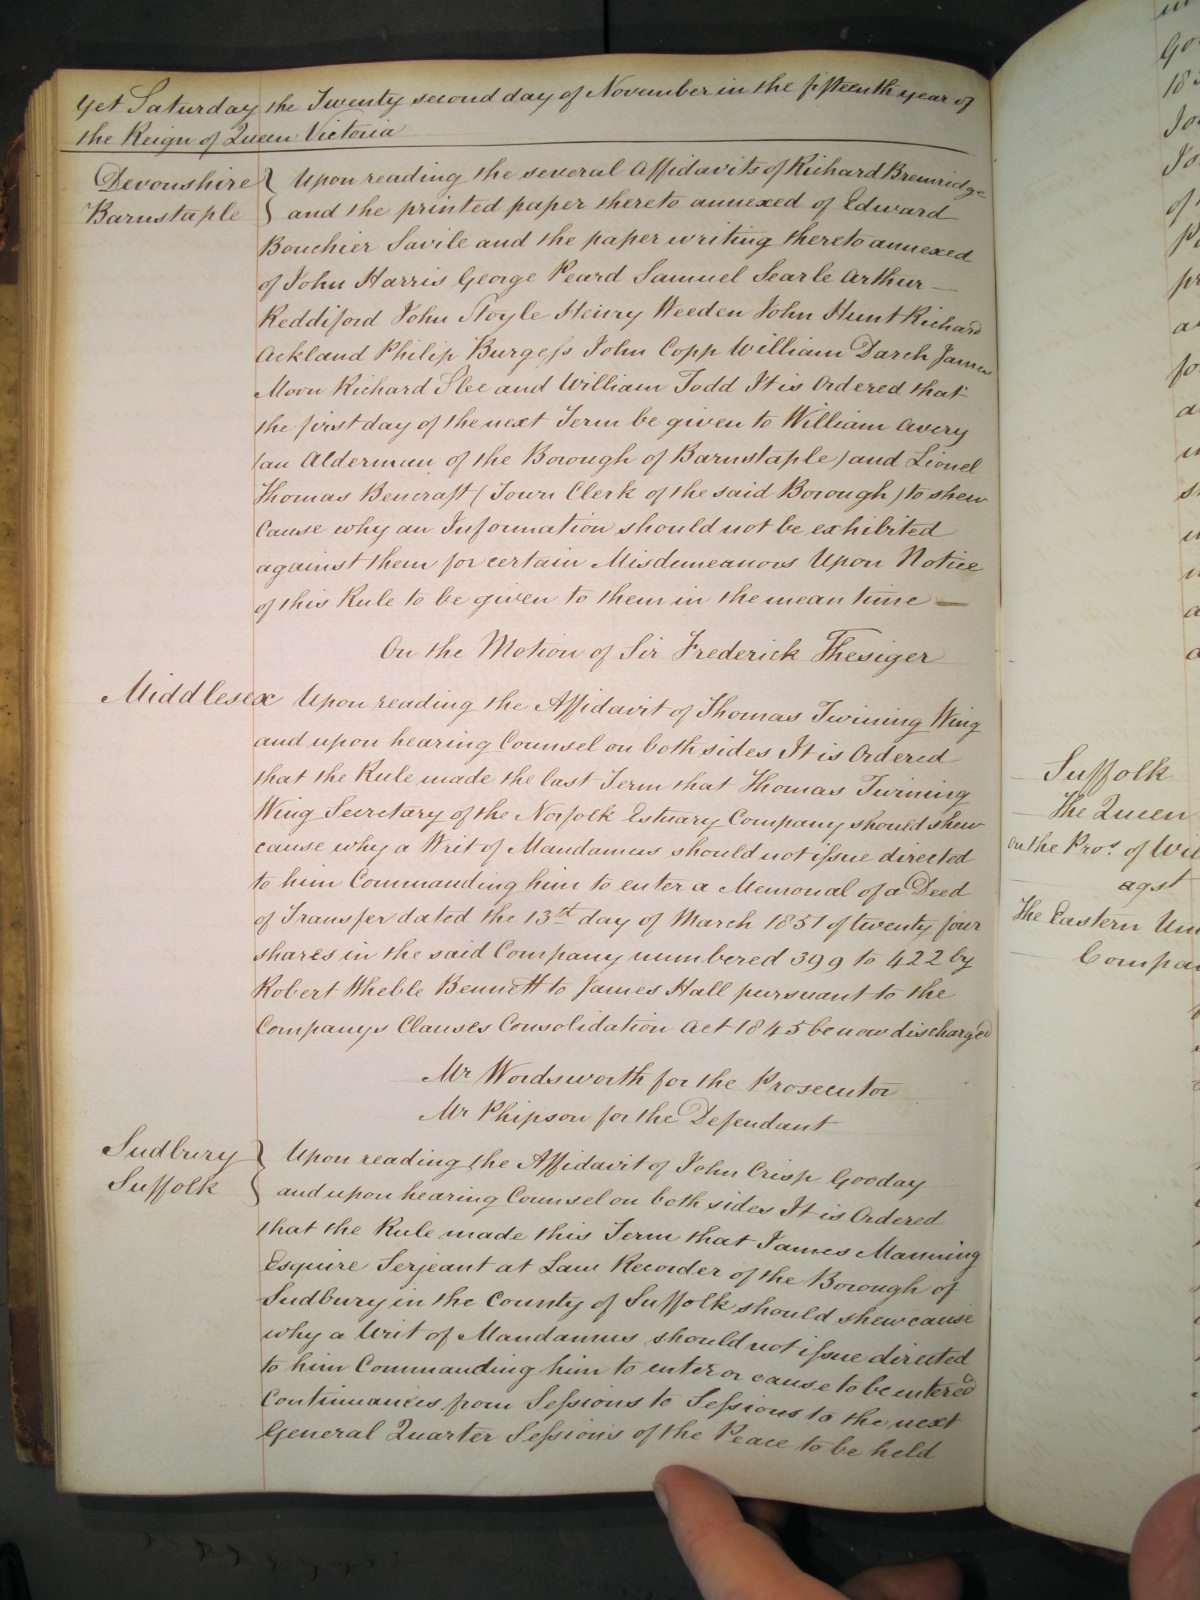 Yet Saturday the Twenty second day of November in the fifteenth year of
the Reign of Queen Victoria
Devonshire
Barnstaple
Upon reading the several Affidavits of Richard Bremridge
and the printed paper thereto annexed of Edward
Bouchier Savile and the paper writing thereto annexed
of John Harris George Peard Samuel Searle Arthur
Reddiford John Stoyle Henry Weeden John Hunt Richard
Ackland Philip Burgess John Copp William Darch James
Moon Richard Slee and William Todd It is Ordered that
the first day of the next Term be given to William Avery
(an Alderman of the Borough of Barnstaple) and Lionel
Thomas Bencraft (Town Clerk of the said Borough) to shew
Cause why an Information should not be exhibited
against them for certain Misdemeanors Upon Notice
of this Rule to be given to them in the mean time
On the Motion of Sir Frederick Thesiger
Middlesex Upon reading the Affidavit of Thomas Twining Wing
and upon hearing Counsel on both sides It is Ordered
that the Rule made the last Term that Thomas Twining
Wing Secretary of the Norfolk Estuary Company should shew
cause why a Writ of Mandamus should not issue directed
to him Commanding him to enter a Memorial of a Deed
of Transfer dated the 13th day of March 1851 of twenty four
shares in the said Company numbered 399 to 422 by
Robert Wheble Bennett to James Hall pursuant to the
Companys Clauses Consolidation Act 1845 be now discharged
Mr Wordsworth for the Prosecutor
Mr Phipson for the Defendant
Sudbury
Suffolk
Upon reading the Affidavit of John Crisp Gooday
and upon hearing Counsel on both sides It is Ordered
that the Rule made this Term that James Manning
Esquire Serjeant at Law Recorder of the Borough of
Sudbury in the County of Suffolk should shew cause
why a Writ of Mandamus should not issue directed
to him Commanding him to enter or cause to be entered
Continuances from Sessions to Sessions to the next
General Quarter Sessions of the Peace to be held
Suffolk
The Queen
on the Pros. of
agst
The Eastern